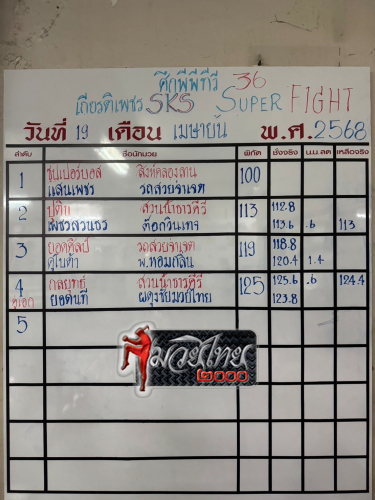 ศึกพีพีทีวี 36
เกียรติเพชร SKS SUPER FIGHT
วันที่ 19 เดือน เมษายน พ.ศ. 2568
ลำดับ ชื่อนักมวย พิกัด ชั่งจริง น.น.ลด เหลือจริง
1 ซุปเปอร์บอล สิงห์คลองลาน 100
แสนเพชร รถสวยขาเรด
2 ปูติน สวนน้ำธารคีรี 113 112.8
เพชรสวนธร ต้อกวินเทจ 113.6 .6 113
3 ยอดศิลป์ รถสวยขาเรด 119 118.8
คูโบต้า พ.หอมกลิ่น 120.4 1.4
4 กลยุทธ์ สวนน้ำธารคีรี 125 125.6 .6 124.4
คู่เอก ยอดนที ผดุงชัยมวยไทย 123.8
5
มวยไทย
๒๐๐๐